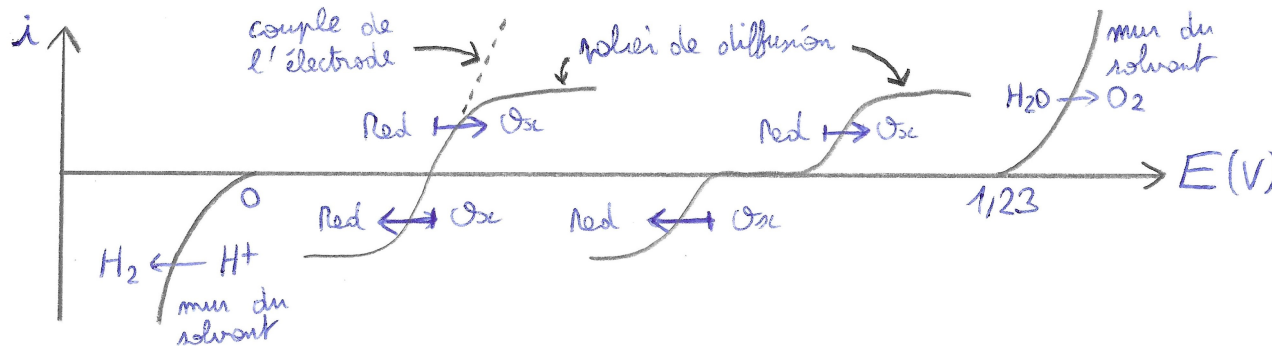 i
couple de
l'électrode
palier de diffusion
mur du
solvant
H2O → O2
Red → Ox
Red → Ox
E(V)
0
1,23
Red ← Ox
Red ← Ox
H2 ← H+
mur du
solvant